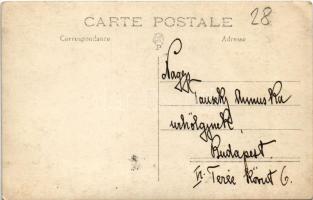 CARTE POSTALE
28
Correspondance
Adresse
Nagys.
Tauszky Annuska
urhölgynek
Budapest.
VI. Teréz körut 6.